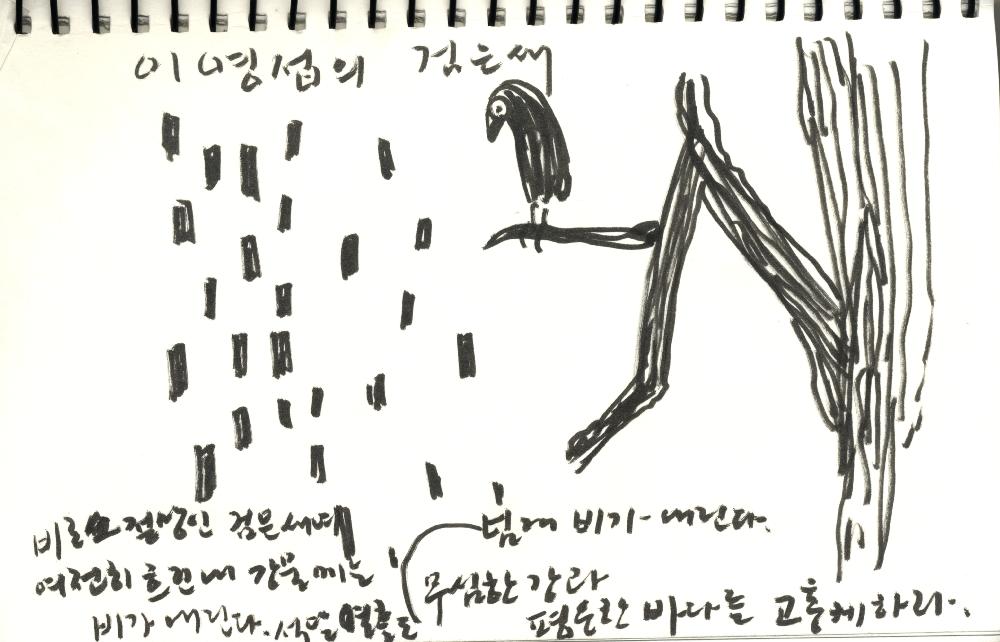 이 영섭의 검은새
비로소 절망인 검은
여전히 흐린 내 강물에는
비가 내린다. 석달 열흘을
넘게 비가 내린다.
무심한 강과
평온한 바다를 고통케하리.